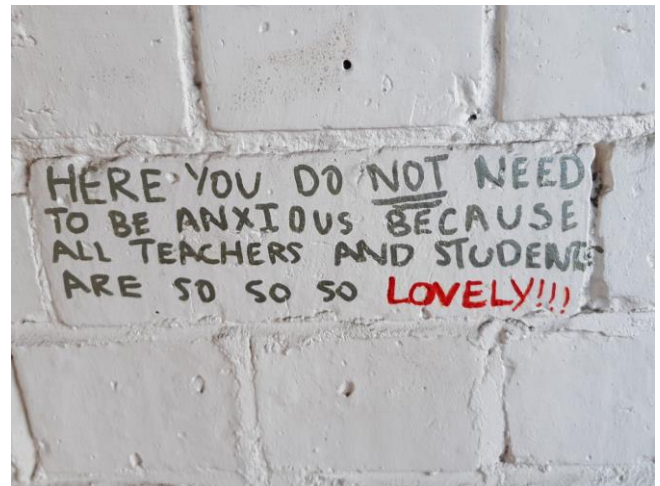 HERE YOU DO NOT NEED
TO BE ANXIOUS BECAUSE
ALL TEACHERS AND STUDENTS
ARE SO SO SO LOVELY!!!